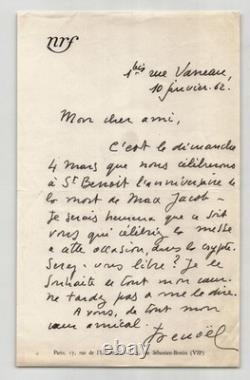 nrf
1bis rue Vaneau,
10 janvier 62.
Mon cher ami,
C'est le dimanche
4 mars que nous célébrerons
à St Benoit l'anniversaire de
la mort de Max Jacob -
Je serais heureux que ce soit
vous qui célébriez la messe
a cette occasion, dans la crypte.
Serez-vous libre? Je le
souhaite de tout mon cœur.
ne tardez pas a me le dire.
A vous, de tout mon
cœur amical.
Paris, 17, rue de l' Sébastien-Bottin (VIIe)
© ebay.com